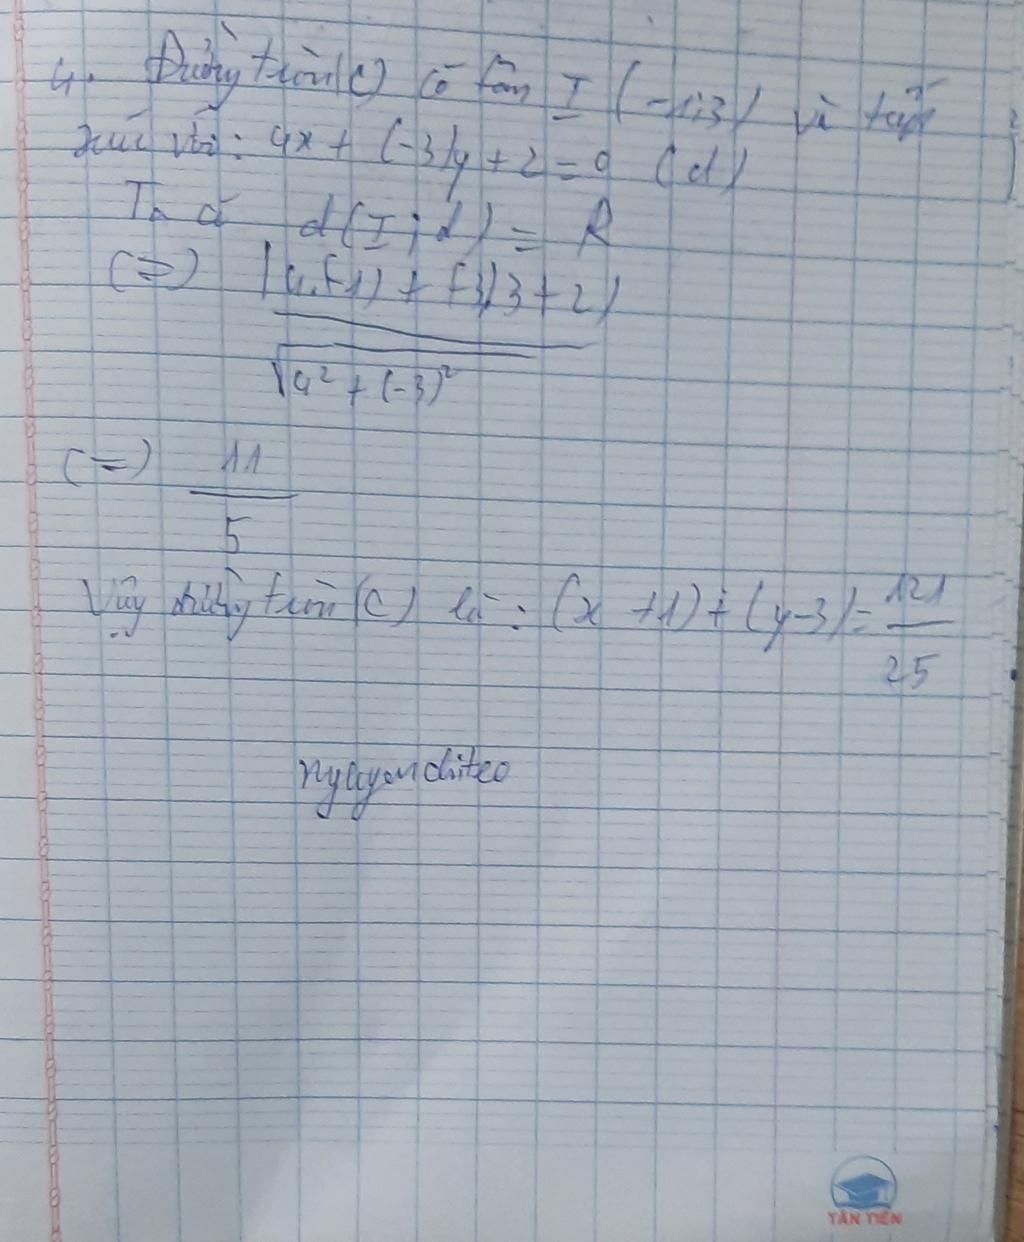 4. Đường tròn (C) có tâm I (-1;3) và tiếp
xúc với: 4x + (-3)y + 2 = 0 (d)
Ta có d(I;d) = R
(=>) |4.(-1) + (-3)3 + 2|
√4² + (-3)²
(=) 11
5
Vậy đường tròn (C) là: (x +1) + (y-3) = 121
25
TÂN TIẾN